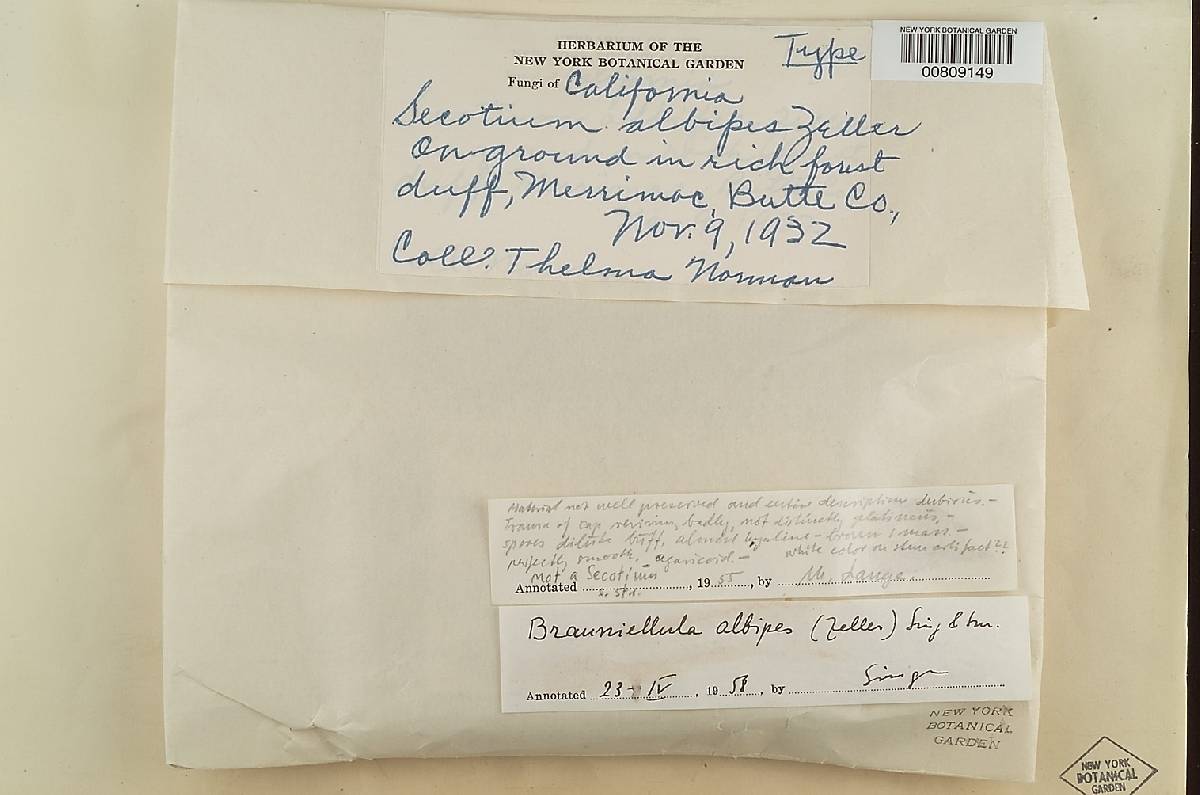 HERBARIUM OF THE
NEW YORK BOTANICAL GARDEN
Type
NEW YORK BOTANICAL GARDEN
00809149
Fungi of California
Secotium albipes Zeller
On ground in rich forest
duff, Merrimac, Butte Co.,
Nov. 9, 1932
Coll. Thelma Norman
Material not well preserved and entire description dubious. -
Trama of cap reviving badly, not distinctly gelatinous, -
spores dilute buff, almost hyaline - brown s mass. -
perfectly smooth, agaricoid. - white color on stem artifact??
not a Secotium
Annotated , 1955, by M. Lange
Brauniellula albipes (Zeller) Sing & Sm.
Annotated 23-IV, 1958, by Singer
NEW YORK
BOTANICAL
GARDEN
NEW YORK
BOTANICAL
GARDEN